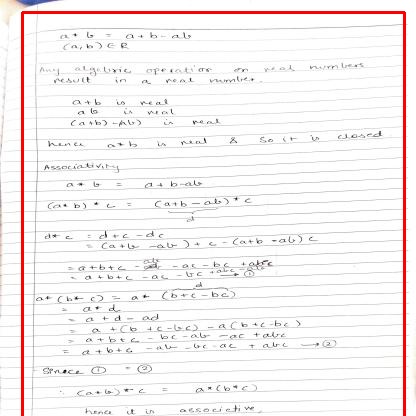 a * b = a + b - ab
(a, b) ∈ R
Any algebric operation on real numbers
result in a real number.
a + b is real
ab is real
(a+b) - (ab) is real
hence a*b is real & so it is closed
Associativity
a * b = a + b - ab
(a * b) * c = (a+b - ab) * c
d
d * c = d + c - dc
= (a+b - ab) + c - (a+b - ab) c
= a + b + c - ab - ac - bc + abc
= a + b + c - ac - bc + abc - ab → ①
d
a * (b * c) = a * (b + c - bc)
= a * d
= a + d - ad
= a + (b + c - bc) - a (b + c - bc)
= a + b + c - bc - ab - ac + abc
= a + b + c - ab - bc - ac + abc → ②
Since ① = ②
∴ (a*b) * c = a * (b*c)
hence it is associative.